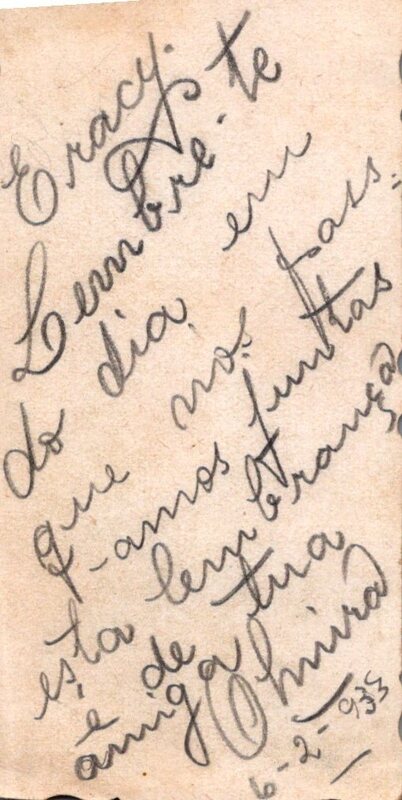 Eracy.
Lembre-te
do dia em
que nos pass-
-amos juntas
esta lembrança
e de tua
amiga Olmira
6-2-935